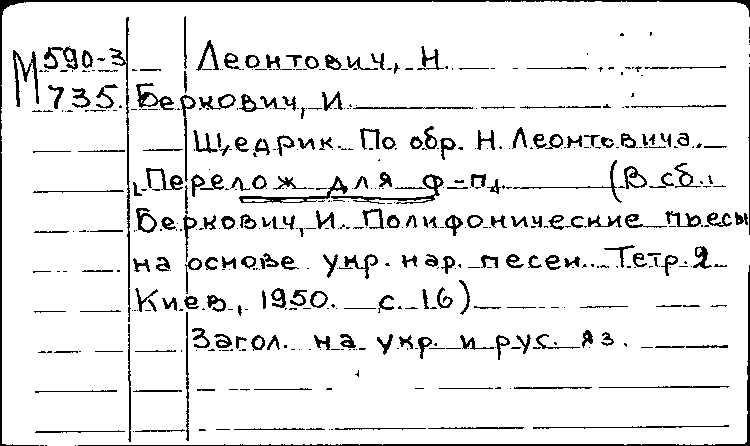 М 590-3 Леонтович, Н.
735. Беркович, И.
Щедрик. По обр. Н. Леонтовича.
[Перелож для ф-п.] (В сб.:
Беркович, И. Полифонические пьесы
на основе укр. нар. песен. Тетр. 2
Киев, 1950. с. 16)
Загол. на укр. и рус. яз.